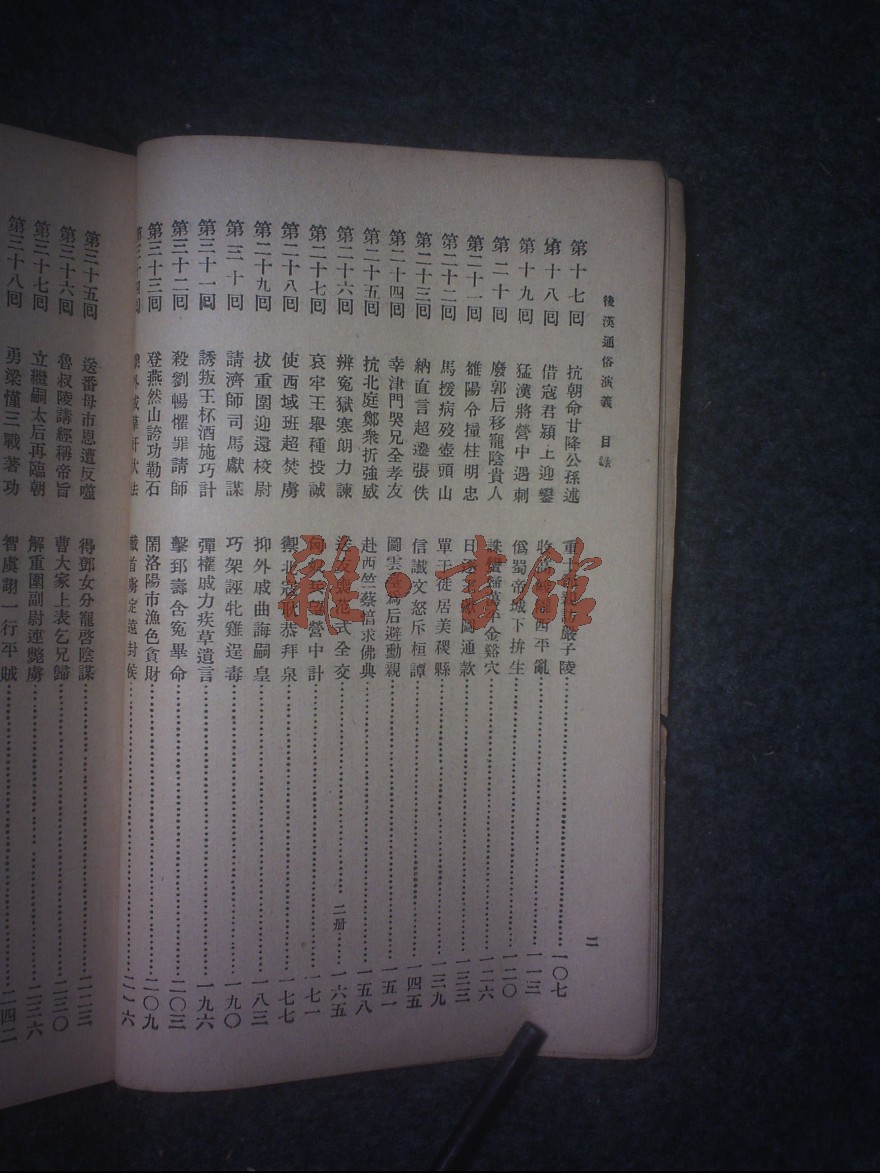 後漢通俗演義 目錄
二
第十七回 抗朝命甘降公孫述 重士節 訪嚴子陵 一〇七
第十八回 借寇君潁上迎鑾 收 西平亂 一一三
第十九回 猛漢將營中遇刺 僞蜀帝城下拚生 一二〇
第二十回 廢郭后移寵陰貴人 誅 金谿穴 一二六
第二十一回 雒陽令撞柱明忠 日逐 通款 一三三
第二十二回 馬援病歿壺頭山 單于徙居美稷縣 一三九
第二十三回 納直言超遷張佚 信讖文怒斥桓譚 一四五
第二十四回 幸津門哭兄全孝友 圖雲臺爲后避勳親 一五一
第二十五回 抗北庭鄭衆折強威 赴西竺蔡愔求佛典 一五八
第二十六回 辨冤獄寒朗力諫 送友喪范式全交 二册 一六五
第二十七回 哀牢王舉種投誠 匈奴 營中計 一七一
第二十八回 使西域班超焚虜 禦北寇耿恭拜泉 一七七
第二十九回 拔重圍迎還校尉 抑外戚曲誨嗣皇 一八三
第三十回 請濟師司馬獻謀 巧架誣牝雞逞毒 一九〇
第三十一回 誘叛王杯酒施巧計 彈權戚力疾草遺言 一九六
第三十二回 殺劉暢懼罪請師 擊郅壽含冤畢命 二〇三
第三十三回 登燕然山誇功勒石 鬧洛陽市漁色貪財 二〇九
第三十四回 定遠封侯
第三十五回 送番母市恩遭反噬 得鄧女分寵啓陰謀
第三十六回 魯叔陵講經稱帝旨 曹大家上表乞兄歸 二三〇
第三十七回 立繼嗣太后再臨朝 解重圍副尉連斃虜 二三六
第三十八回 勇梁慬三戰著功 智虞詡一行平賊 二四二
雜·書館